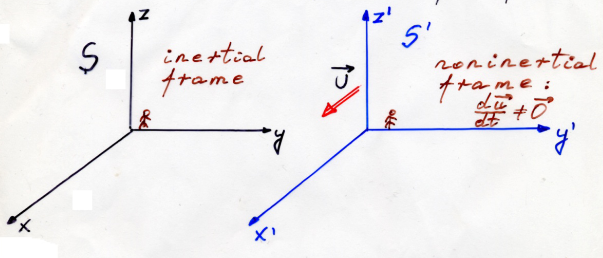 z
S
inertial
frame
y
x
z'
S'
U⃗
noninertial
frame:
du⃗/dt ≠ 0⃗
y'
x'